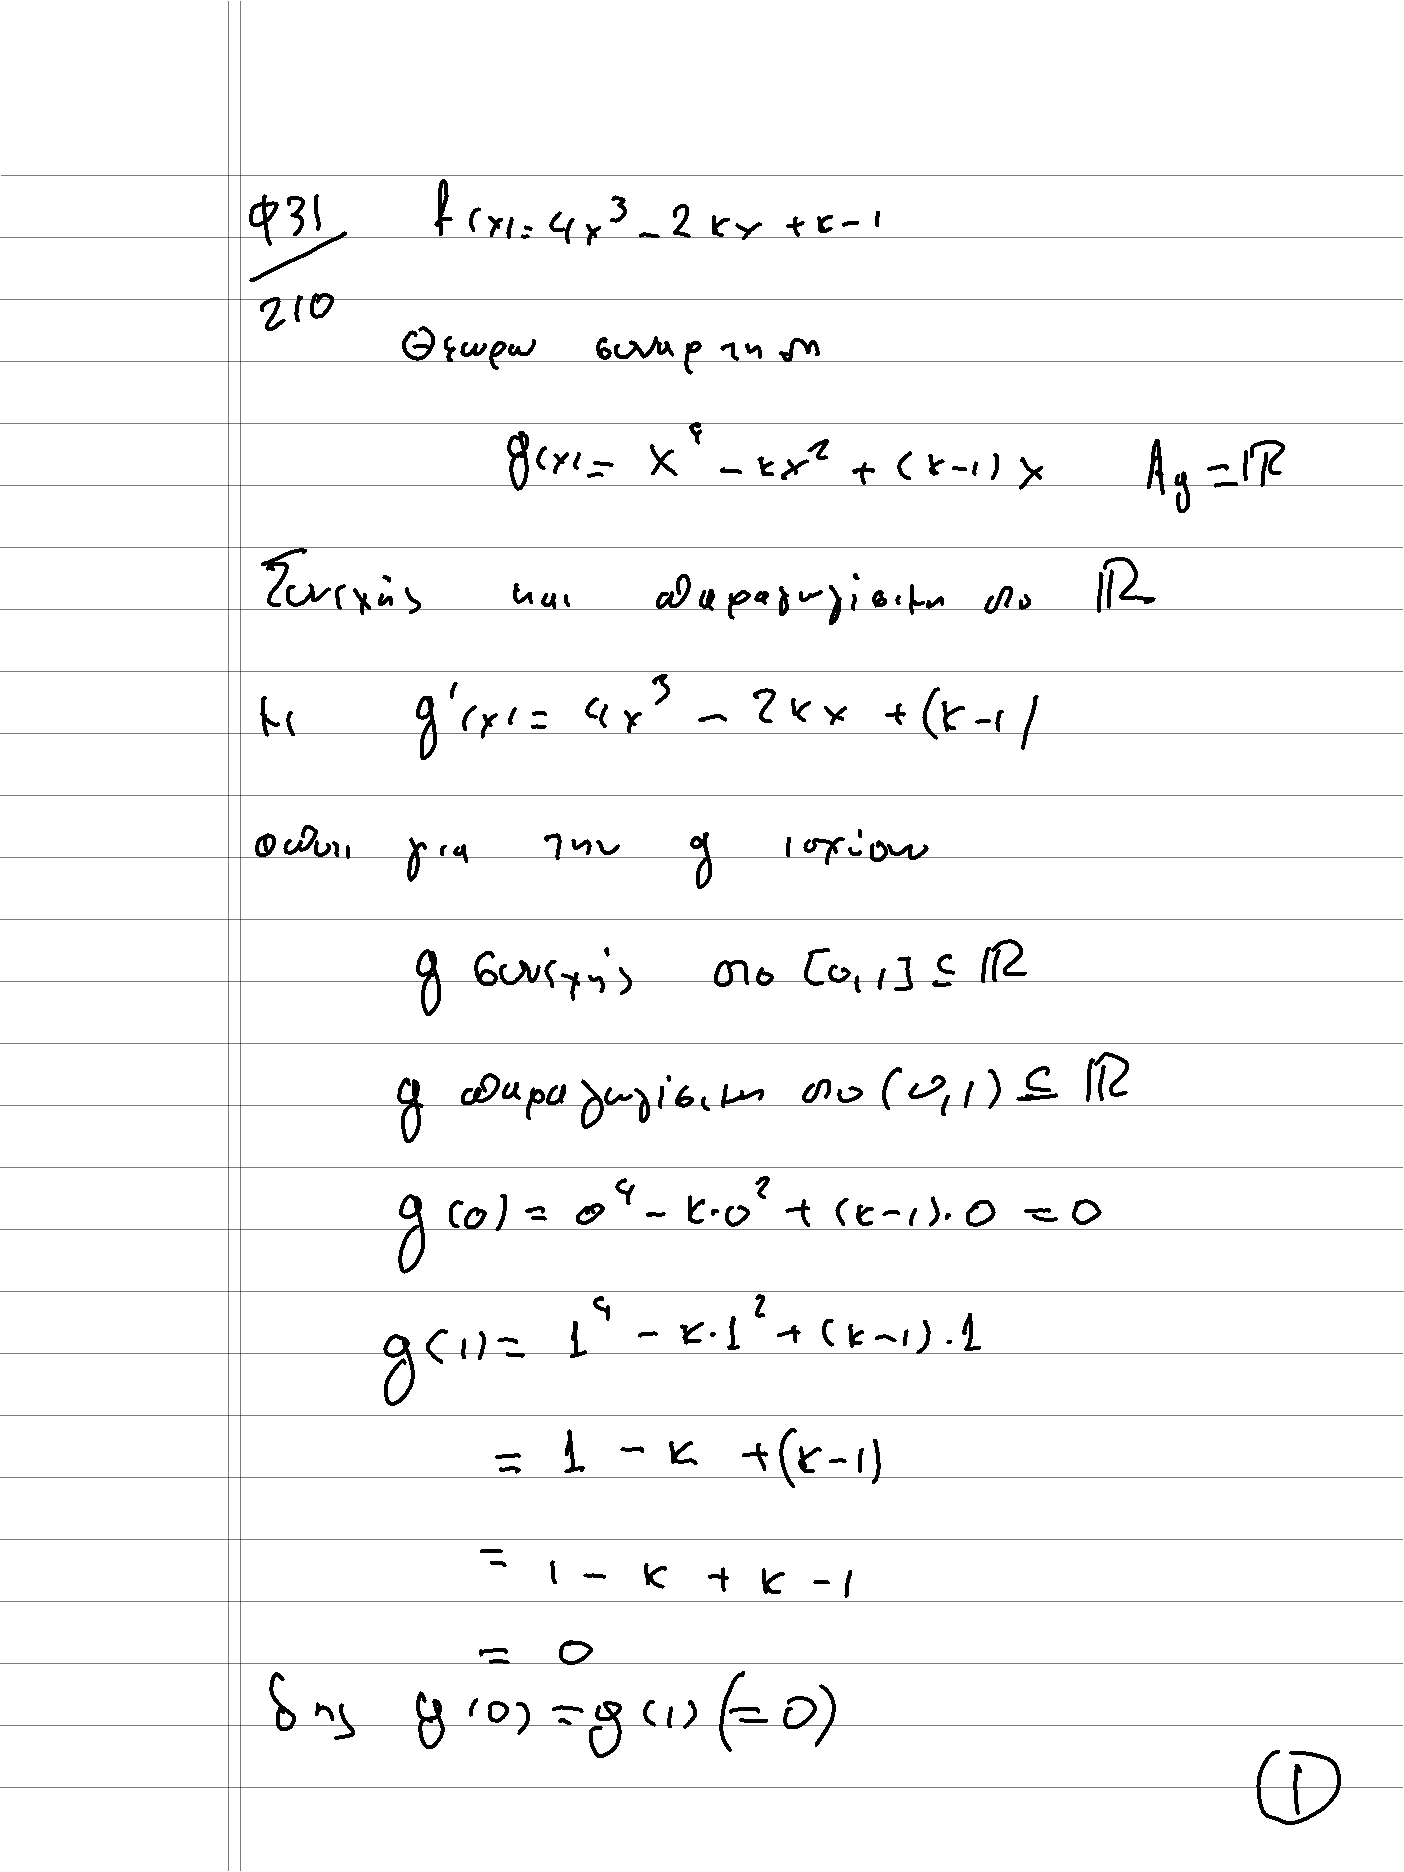 φ31 f(x)=4x³-2κx+κ-1
210
Θεωρω συναρτηση
g(x)= x⁴-κx²+(κ-1)x A_g=ℝ
Συνεχής και παραγωγίσιμη στο ℝ
με g'(x)= 4x³-2κx+(κ-1)
οπότε για την g ισχύουν
g συνεχής στο [0,1]⊆ℝ
g παραγωγίσιμη στο (0,1)⊆ℝ
g(0)= 0⁴-κ·0²+(κ-1)·0=0
g(1)= 1⁴-κ·1²+(κ-1)·1
= 1-κ+(κ-1)
= 1-κ+κ-1
= 0
δης g(0)=g(1)(=0)
①